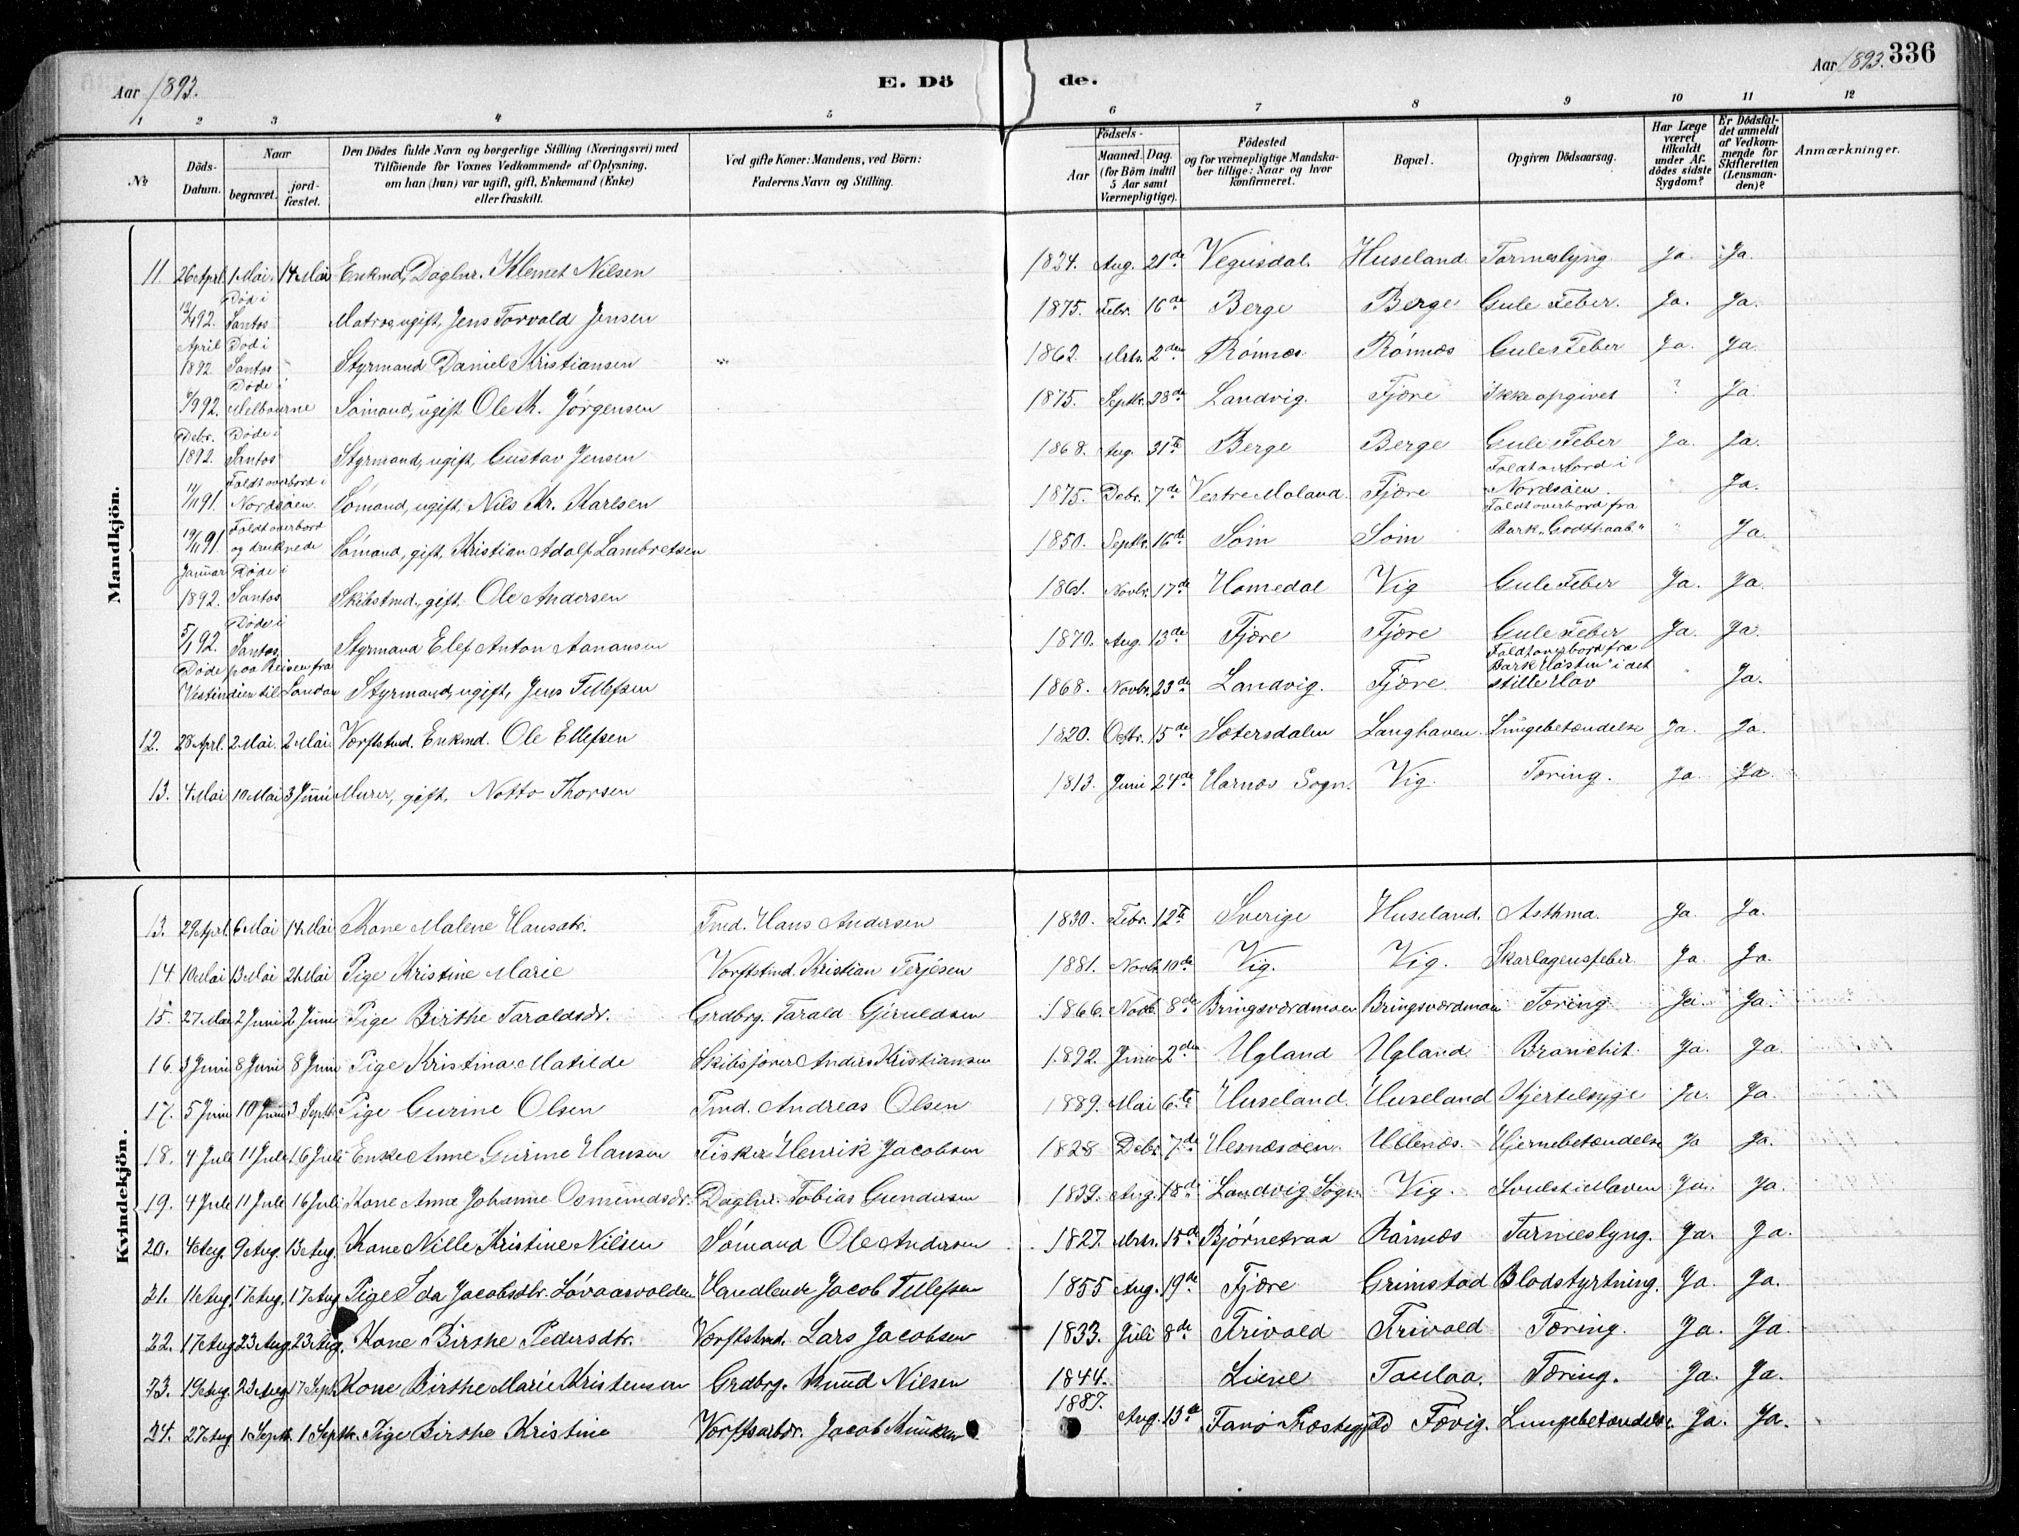 Aar 1893.
E. Dö
de.
Aar 1893. 336
1 2 3 4 5 6 7 8 9 10 11 12
№
Döds-Datum.
Naar
begravet.
jord-fæstet.
Den Dödes fulde Navn og borgerlige Stilling (Næringsvei) med
Tilföiende for Voxnes Vedkommende af Oplysning,
om han (hun) var ugift, gift, Enkemand (Enke)
eller fraskilt.
Ved gifte Koner: Mandens, ved Börn:
Faderens Navn og Stilling.
Födsels-
Aar
Maaned. Dag.
(for Börn indtil
5 Aar samt
Værnepligtige).
Födested
og for værnepligtige Mandska-
ber tillige: Naar og hvor
konfirmeret.
Bopæl.
Opgiven Dödsaarsag.
Har Læge
været
tilkaldt
under Af-
dödes sidste
Sygdom?
Er Dödsfal-
det anmeldt
af Vedkom-
mende for
Skifteretten
(Lensman-
den)?
Anmærkninger.
Mandkjön.
11. 26 Apl. 1 Mai. 14 Mai Enkmd, Daglnr. Klemet Nilsen 1834. Aug. 21de Vegusdal. Huseland. Tarmeslyng Ja. Ja.
92. Død i Santos Matros, ugift, Jens Torvald Jensen 1875. Febr. 16de Berge Berge Gule Feber. Ja. Ja.
April 1892 Død i Santos Styrmand Daniel Kristiansen 1862. Mrts. 2den Rönnes Rönnæs Gule Feber Ja. Ja.
92. Døde i Melbourne Sömand, ugift Ole M. Jörgensen 1875. Septbr. 28de Landvig. Fjære Ikke opgivet ? Ja.
Debr. 1892. Døde i Santos Styrmand, ugift, Gustav Jensen 1868. Aug. 31te Berge Berge Gule Feber Ja. Ja.
11/11 91 Faldt overbord i Nordsöen. Sömand, ugift, Nils Kr. Karlsen 1875. Debr. 7de Vestre Moland. Fjære Faldt overbord i Nordsöen. " Ja.
19/11 91 Faldt overbord og druknede Sömand, gift, Kristian Adolf Lambretsen 1850. Septbr. 16de Söm Söm Faldt overbord fra Bark „Godthaab“ " Ja.
Januar 1892. Døde i Santos Skibstmd., gift. Ole Andersen 1861. Novbr. 17de Homedal Vig Gule Feber Ja. Ja.
5/1 92. Døde i Santos Styrmand Elef Anton Aanansen 1870. Aug. 13de Fjære Fjære Gule Feber Ja. Ja.
Døde paa Reisen fra Vestindien til London Styrmand, ugift, Jens Tellefsen 1868. Novbr. 23de Landvig. Fjære. Faldt overbord fra Bark "Høsten" i det stille Hav " Ja.
12. 28 Apl. 2 Mai. 2 Mai. Værftstmd. Enkmd. Ole Ellefsen 1820. Octr. 15de Sætersdalen Langhaven. Lungebetændelse Ja. Ja.
13. 4 Mai 10 Mai 3 Juni Murer, gift, Notto Thorsen 1813. Juni 24de Harnæs Sogn. Vig. Tæring. Ja. Ja.
Kvindekjön.
13. 29 Apl. 6 Mai 14 Mai Kone Malene Hansdtr. Tmd. Hans Andersen 1830. Febr. 12te Sverige Huseland. Asthma. Ja. Ja.
14. 10 Mai 13 Mai 21 Mai Pige Kristine Marie Værftstmd. Kristian Terjesen 1881. Novbr. 10de Vig. Vig. Skarlagensfeber Ja. Ja.
15. 27 Mai 2 Juni 2 Juni Pige Birthe Taraldsdr. Grdbrg. Tarald Gjeruldsen 1866. Novb. 8de Bringsværdmoen Bringsværdmoen Tæring Ja. Ja.
16. 3 Juni 8 Juni 8 Juni Pige Kristina Matilde Skibsfører Anders Kristiansen 1892. Juni 2den Ugland Ugland. Bronchit. Ja. Ja.
17. 5 Juni 10 Juni 3 Septbr. Pige Gurine Olsen Tmd. Andreas Olsen 1889. Mai 6te Huseland. Huseland Hjertesyge Ja. Ja.
18. 4 Juli 11 Juli 16 Juli Enke Anne Gurine Hansen Fisker Henrik Jacobsen 1828 Debr. 7de Hesnæsöen. Ullenæs. Hjernebetændelse Ja Ja.
19. 4 Juli 11 Juli 16 Juli Kone Anne Johanne Osmundsdr. Daglnr. Tobias Gundersen 1839. Aug. 18de Landvig Sogn Vig. Svulst i Maven Ja. Ja.
20. 4 Aug. 9 Aug. 13 Aug. Kone Nille Kristine Nilsen Sömand Ole Andersen 1827. Mrts. 15de Bjørnetraa Rönnæs Tarmeslyng. Ja. Ja.
21. 11 Aug. 17 Aug. 17 Aug Pige Ida Jacobsdtr. Lövaasvolden Handlende Jacob Tellefsen 1855 Aug. 19de Fjære Grimstad Blodstyrtning. Ja. Ja.
22. 17 Aug 23 Aug 23 Aug. Kone Birthe Pedersdtr. Værftstmd. Lars Jacobsen 1833. Juli 8de Trivold Trivold Tæring. Ja. Ja.
23. 19 Aug. 23 Aug 17 Sept. Kone Birthe Marie Kristensen Grdbrg. Knud Nilsen 1844. Liene Taulaa. Tæring. Ja. Ja.
24. 27 Aug 1 Septb. 1 Septb. Pige Birthe Kristine Værftsarbdr. Jacob Knudsen 1887. Aug. 13de Præstegjeld Fævig. Lungebetændelse. Ja. Ja.